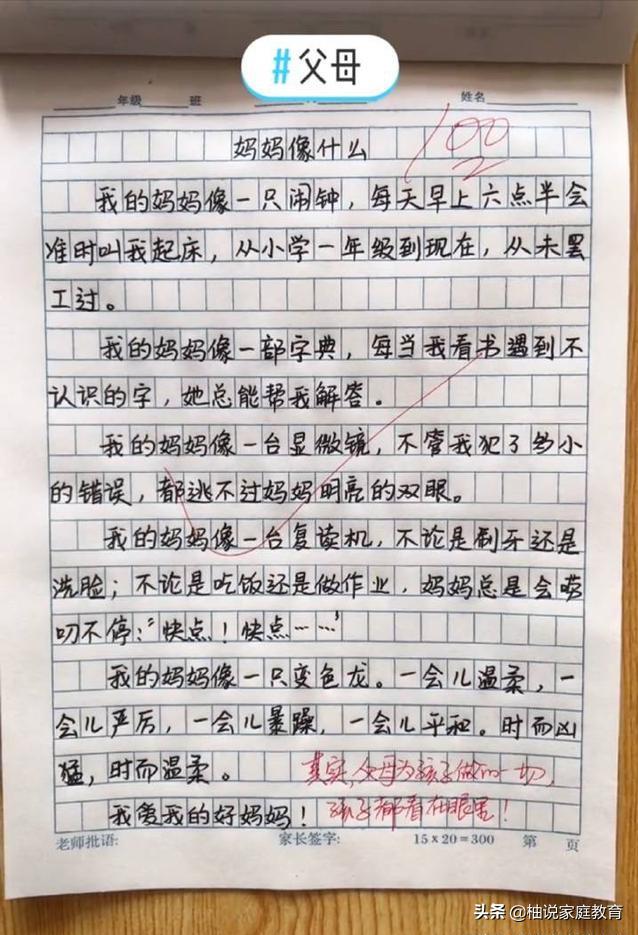 #父母
年级 班 姓名
妈妈像什么
100
我的妈妈像一只闹钟，每天早上六点半会
准时叫我起床，从小学一年级到现在，从未罢
工过。
我的妈妈像一部字典，每当我看书遇到不
认识的字，她总能帮我解答。
我的妈妈像一台显微镜，不管我犯了多小
的错误，都逃不过妈妈明亮的双眼。
我的妈妈像一台复读机，不论是刷牙还是
洗脸；不论是吃饭还是做作业，妈妈总是会唠
叨不停：“快点！快点……”
我的妈妈像一只变色龙。一会儿温柔，一
会儿严厉，一会儿暴躁，一会儿平和。时而凶
猛，时而温柔。
真实，父母为孩子做的一切，
我爱我的好妈妈！
孩子都看在眼里！
老师批语: 家长签字: 15x20=300 第 页
头条 @柚说家庭教育